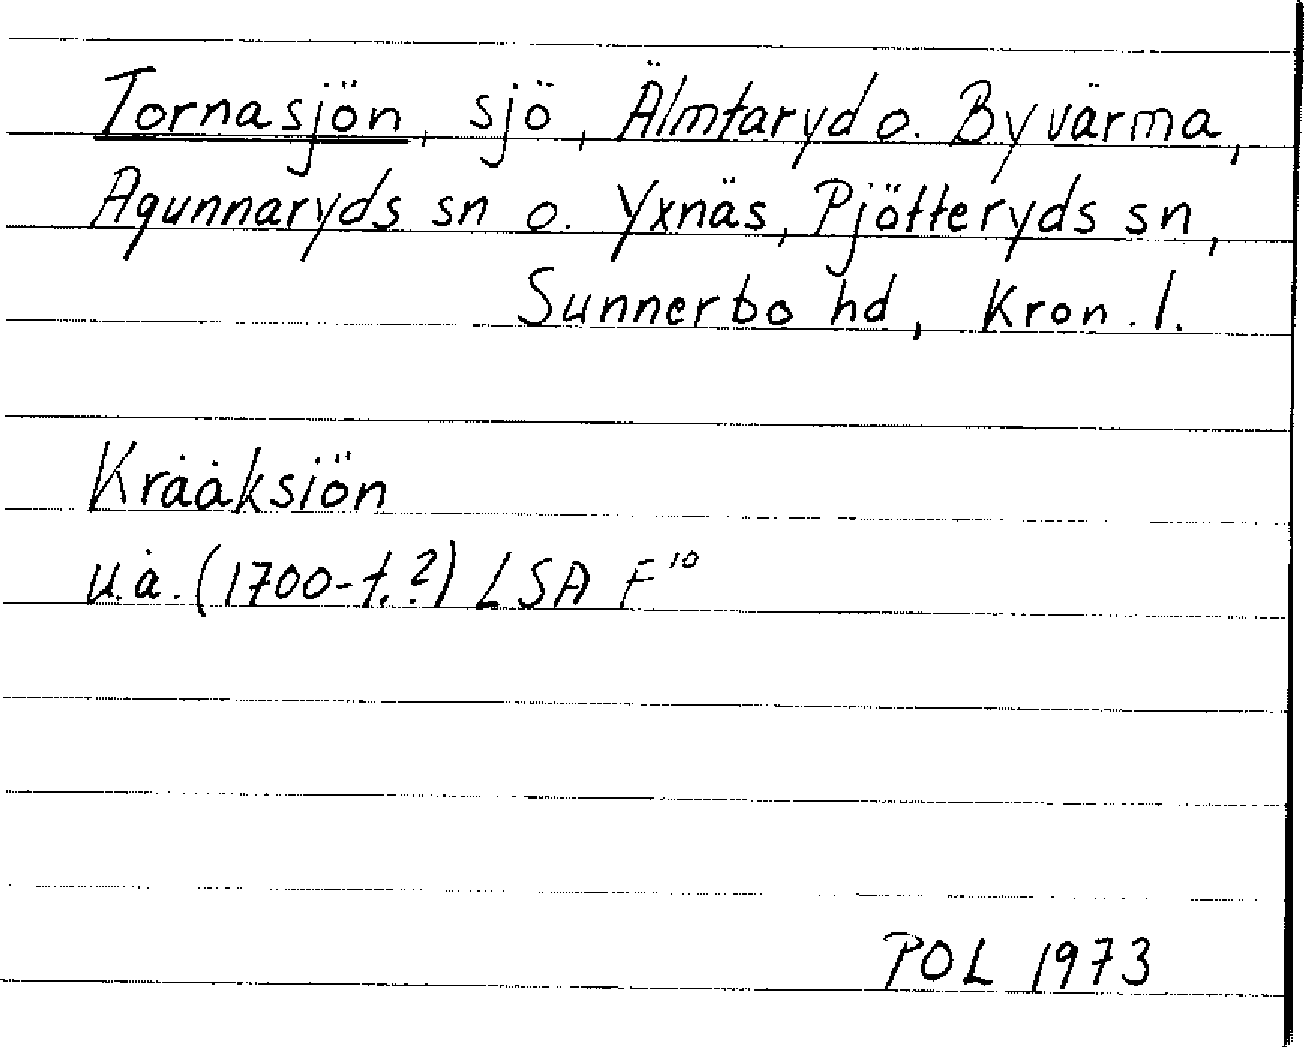 Tornasjön, sjö, Älmtaryd o. Byvärma,
Agunnaryds sn o. Yxnäs, Pjätteryds sn,
Sunnerbo hd, Kron. l.
Krååksiön
u.å. (1700-t.?) LSA F¹⁰
POL 1973